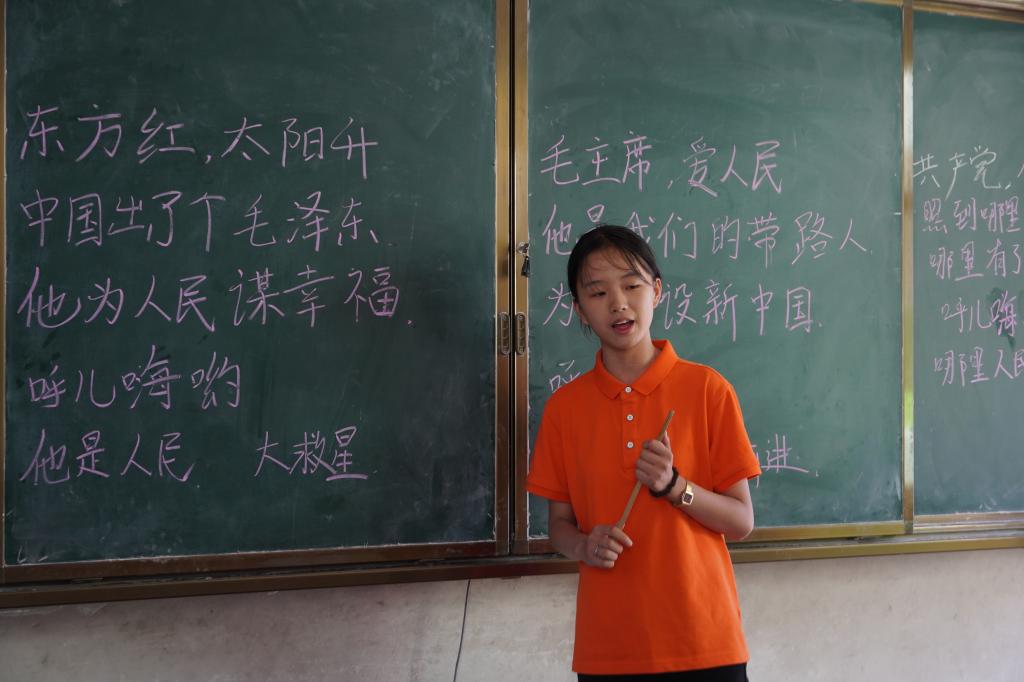 东方红,太阳升
中国出了个毛泽东.
他为人民谋幸福.
呼儿嗨哟
他是人民 大救星.
毛主席,爱人民
他是我们的带路人.
为 设新中国.
呼
进.
共产党,
照到哪里
哪里有了
呼儿嗨
哪里人民